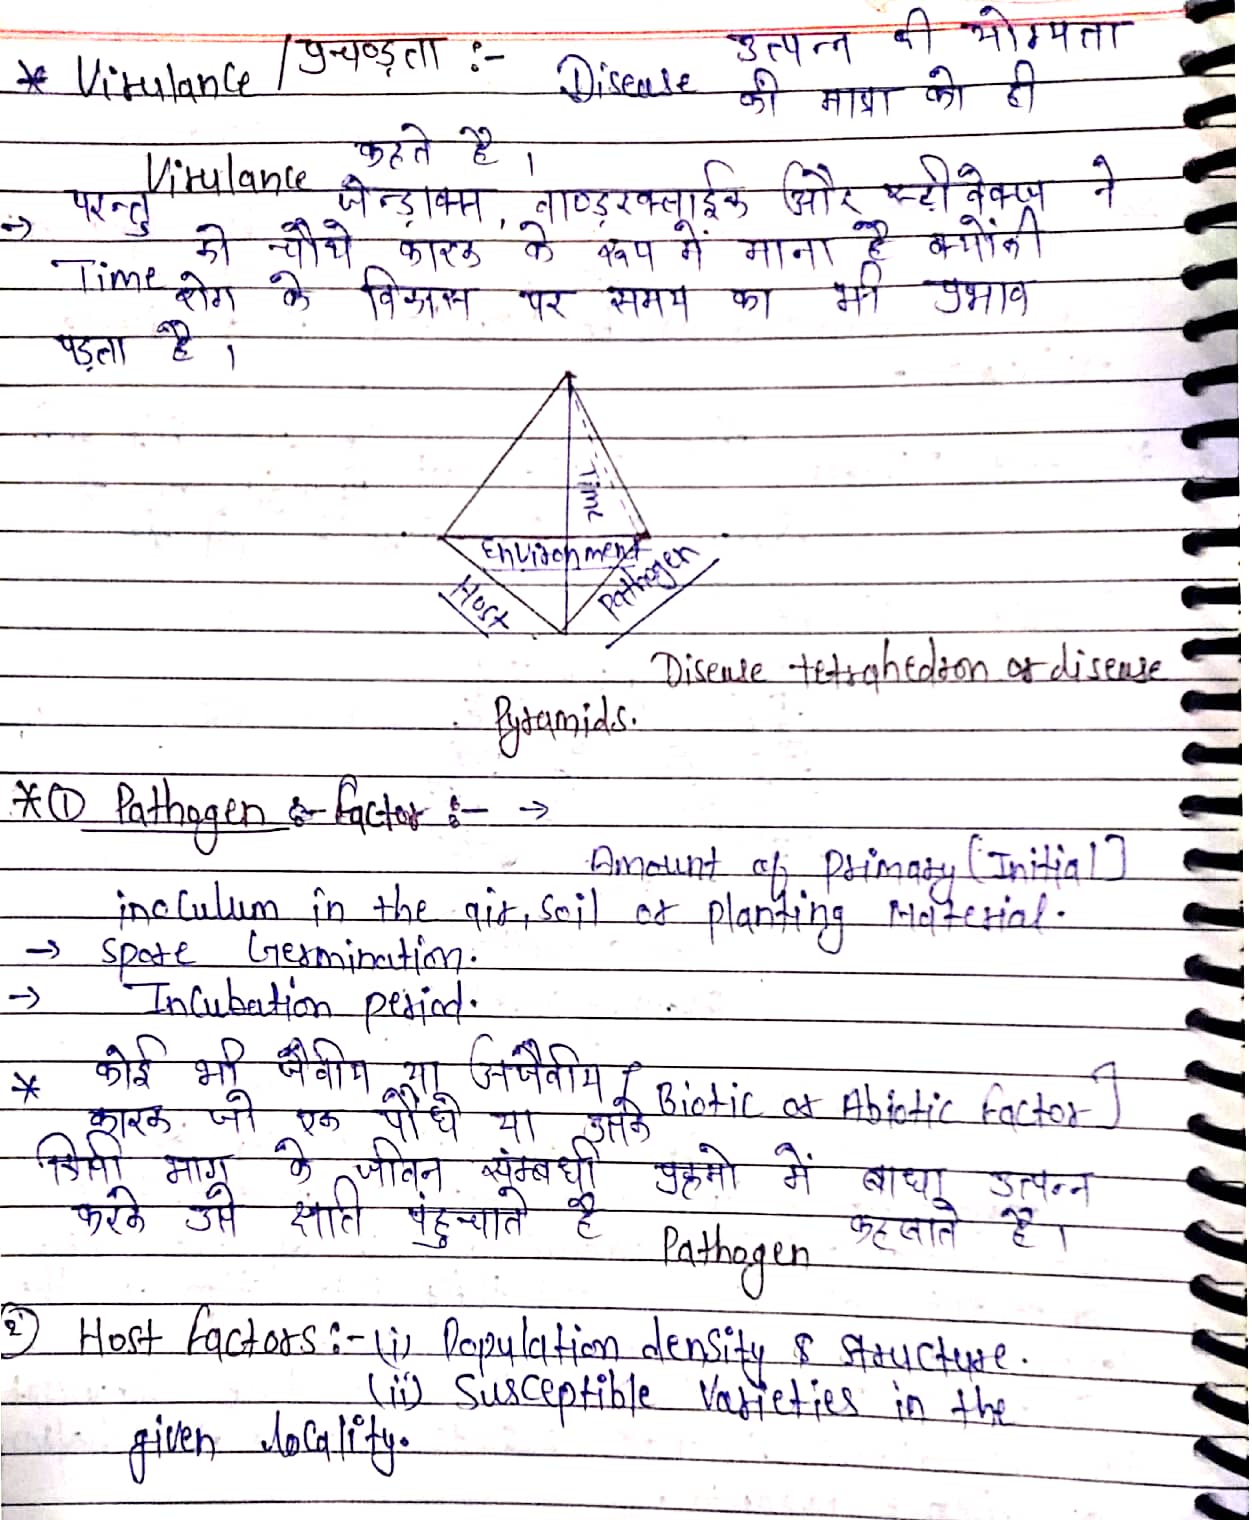 * Virulance / प्रचण्ड़ता :- Disease उत्पन्न की योग्यता
की मात्रा को ही
Virulance कहते है ।
→ परन्तु जेन्ड़ाक्स, वाण्ड़रक्लाईक और स्टीवेक्स ने
Time को चौथे कारक के रूप में माना है क्योंकी
रोग के विकास पर समय का भी प्रभाव
पड़ता है ।
Time
Environment
Host
Pathogen
Disease tetrahedron or disease
Pyramids.
* ① Pathogen :- factor :- →
Amount of primary [Initial]
inoculum in the air, soil or planting Material.
→ Spore Germination.
→ Incubation period.
* कोई भी जैवीय या अजैवीय [Biotic or Abiotic factor]
कारक जो एक पौधे या उसके
किसी भाग के जीवन संम्बधी प्रक्रमो में बाधा उत्पन्न
करके उसे क्षति पंहुचाते है Pathogen कहलाते है ।
② Host factors :- (i) Population density & structure.
(ii) Susceptible Varieties in the
given locality.